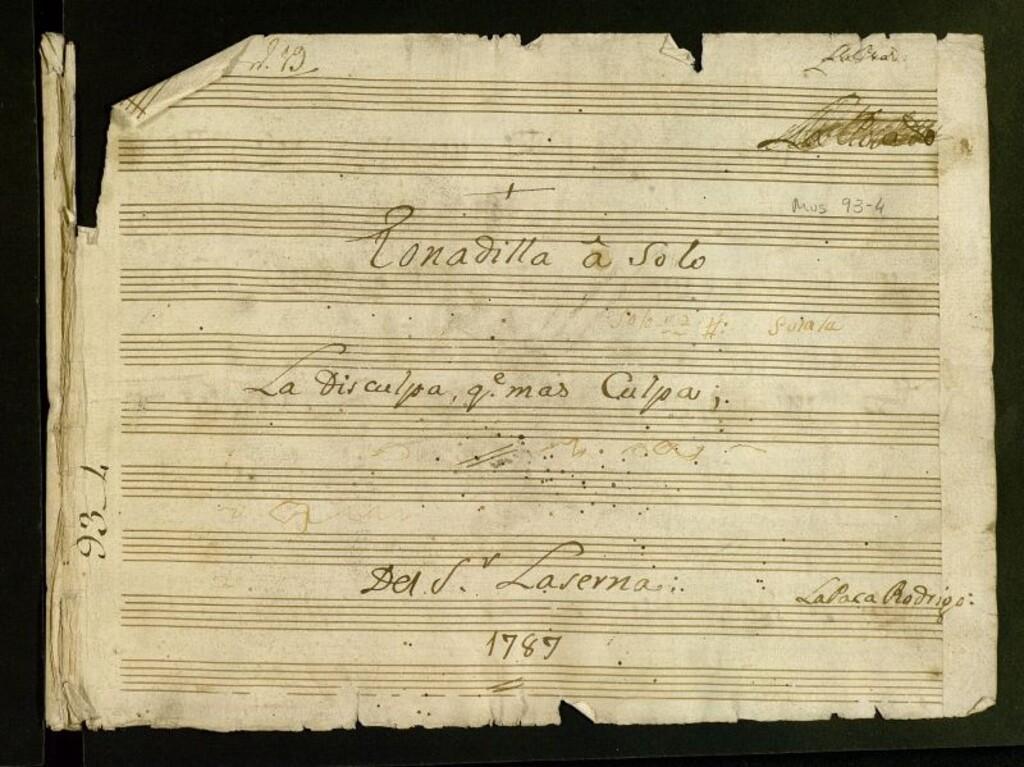 n.º 13
Mus 93-4
Tonadilla â Solo
La Disculpa, q.e mas Culpa;.
93_4
Del S.r Laserna:.
La Paca Rodrigo:
1787